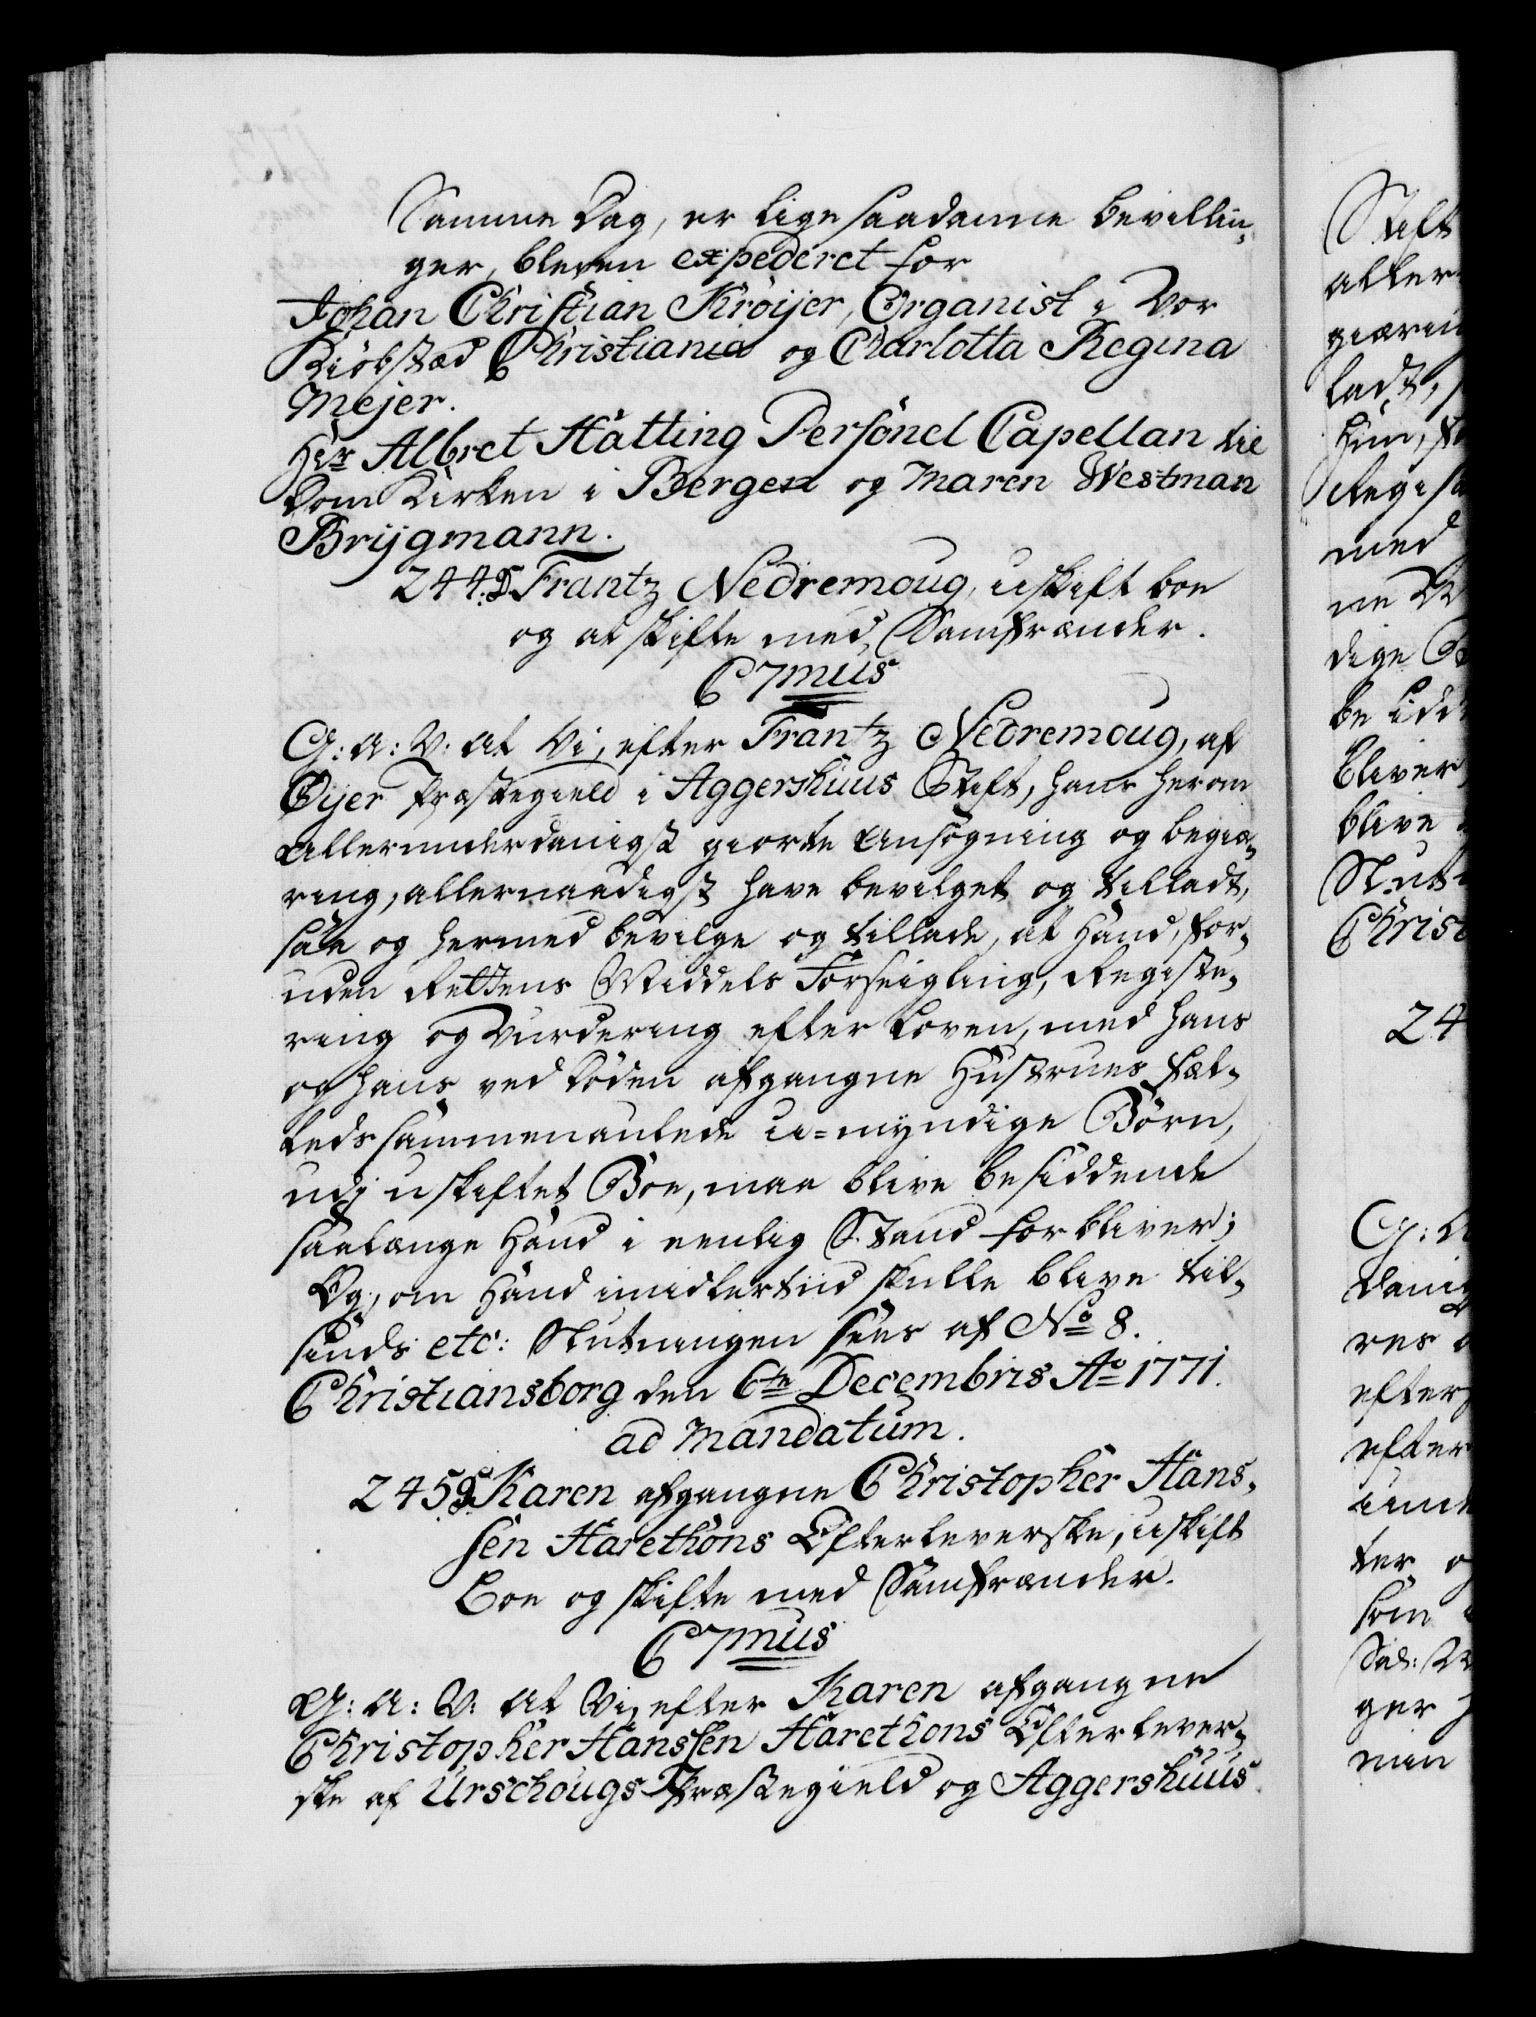 Samme Dag, er lige saadanne bevillin-
ger, bleven expederet for
Johan Christian Kröijer, Organist i Vor
Kiöbstæd Christiania og Charlotta Regina
Mejer.
Hr Albret Hatting Personel Capellan til
Dom Kirken i Bergen og Maren Westman
Brijgmann.
244. Frantz Nedremoug, uskift boe
og at skifte med Samfrænder.
C7mus
G: A: V: at Vi, efter Frantz Nedremoug, af
Öijer Præstegield i Aggershuus Stift, hans herom
allerunderdanigst giorte Ansögning og begiæ-
ring, allernaadigst have bevilget og tilladt,
saa og hermed bevilge og tillade, at hand, for-
uden Rettens Middels Forseigling, Registe-
ring og Vurdering efter Loven, med hans
og hans ved döden afgangne Hustrues fæl-
leds sammenaulede u-myndige Börn,
udj uskiftet Boe, maa blive besiddende
saalænge hand i eenlig Stand forbliver;
Og, om hand imidlertiid skulle blive til-
sinds etc: Slutningen sees af No 8.
Christiansborg den 6te Decembris Ao 1771.
ad Mandatum.
245. Karen afgangne Christopher Hans-
sen Harethons Efterleverske, uskift
Boe og skifte med Samfrænder.
C7mus
G: A: V: at Vi, efter Karen afgangne
Christopher Hanssen Harethons Efterlever-
ske af Urschougs Præstegield og Aggershuus
Stift
aller-
giærin
ladt,
hun, fo
Regist
med
ne
dige B
besidd
bliver
blive
Slutn
Christ
24
G: A
danig
res
efter
efter
ter o
som
ger
min